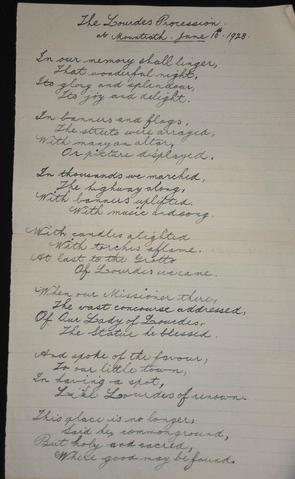 The Lourdes Procession.
at Mountrath. June 10th. 1928.
In our memory shall linger,
That wonderful night,
Its glory and splendour,
Its joy and delight.
In banners and flags,
The streets were arrayed,
With many an altar,
Or picture displayed.
In thousands we marched,
The highway along,
With banners uplifted
With music and song.
With candles alighted
With torches aflame.
At last to the Grotto
Of Lourdes we came.
When our Missioner there,
The vast concourse addressed,
Of Our Lady of Lourdes,
The Statue he blessed.
And spoke of the favour,
To our little town,
In having a spot,
Like Lourdes of renown.
This place is no longer,
Said he, common ground,
But holy and sacred,
Where good may be found.